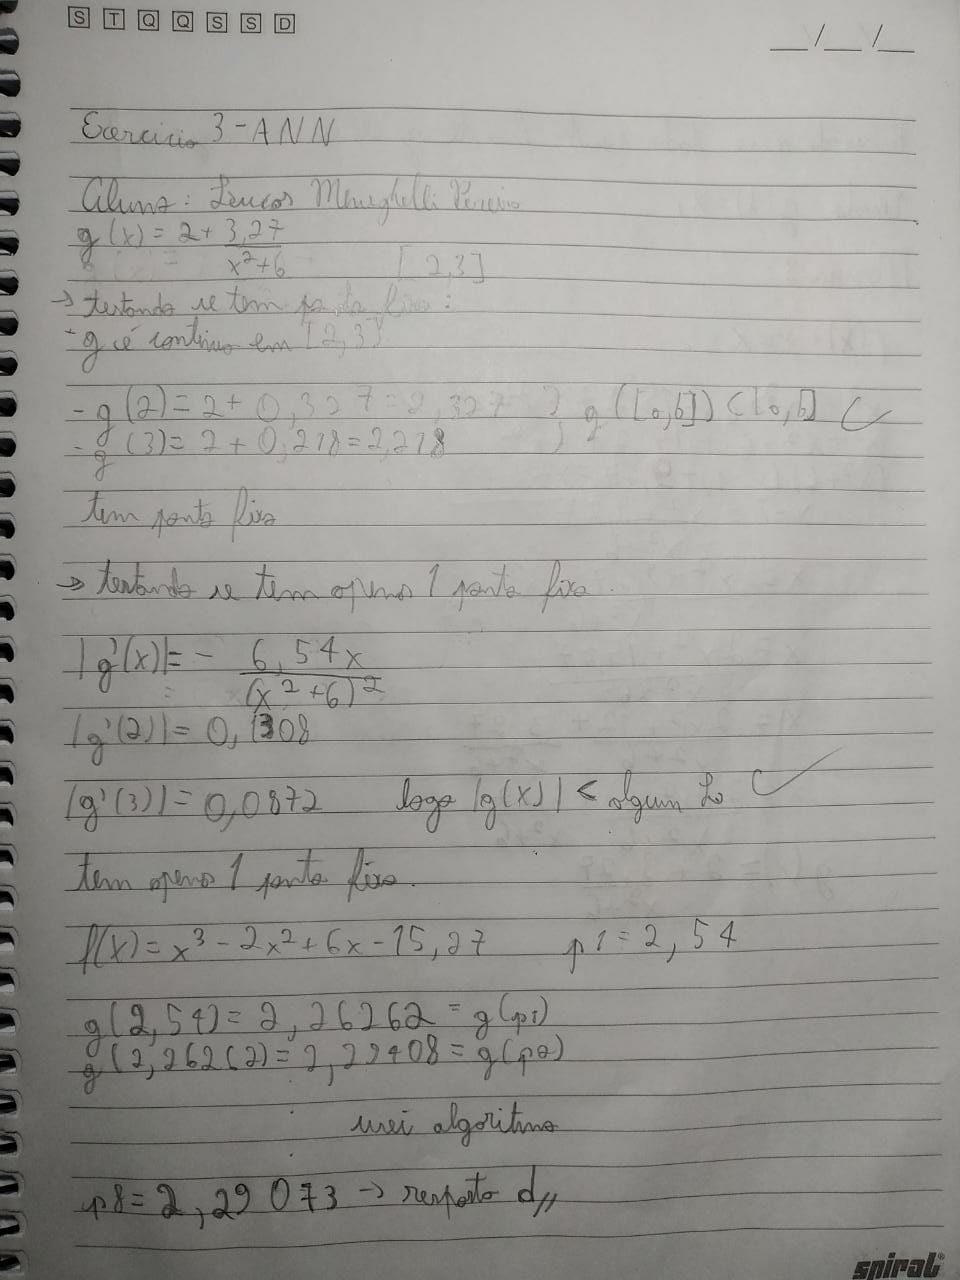 S T Q Q S S D
__/__/__
Exercicio 3 - ANN
Aluno: Lucas Meneghelli Pereira
g(x) = 2 + 3,27
x²+6 [2,3]
→ testando se tem ponto fixo:
- g é continuo em [2,3]
- g(2) = 2 + 0,327 = 2,327 } g([a,b]) C [a,b] ✓
- g(3) = 2 + 0,218 = 2,218
tem ponto fixo
→ testando se tem apenas 1 ponto fixo.
|g'(x)| = - 6,54x
(x²+6)²
|g'(2)| = 0,1308
|g'(3)| = 0,0872 logo |g(x)| < algum ✓
tem apenas 1 ponto fixo.
f(x) = x³ - 2x² + 6x - 15,27 p1 = 2,54
g(2,54) = 2,26262 = g(p1)
g(2,26262) = 2,29408 = g(p2)
usei algoritmo
p8 = 2,29073 → resposta d//
spiral®